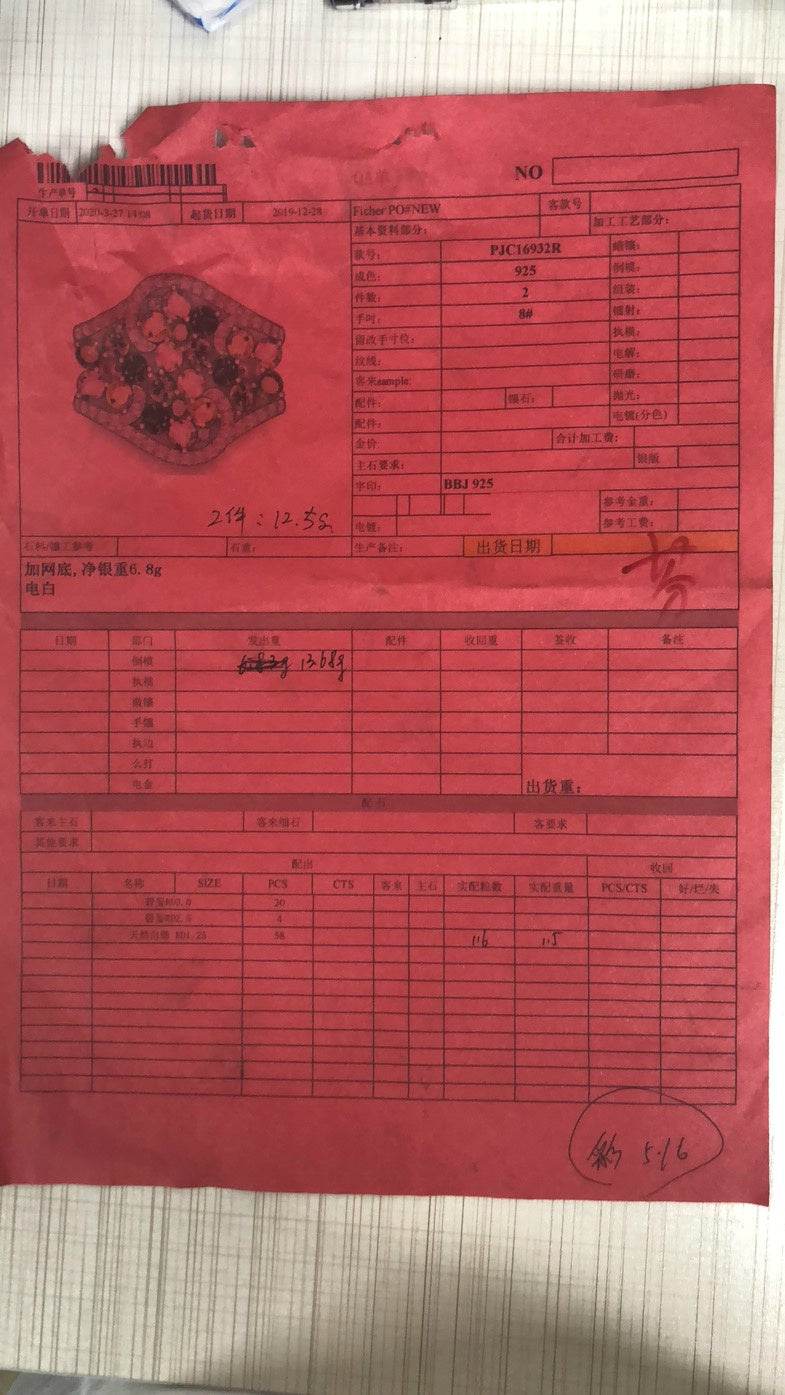 NO
生产单号
开单日期 2020-3-27 14:08 起货日期 2019-12-28 Ficher PO#NEW 客款号
基本资料部分: 加工工艺部分:
款号: PJC16932R 蜡镶:
成色: 925 倒模:
件数: 2 组装:
手吋: 8# 镭射:
留改手寸位: 执模:
纹线: 电解:
客来sample: 研磨:
配件: 镶石: 抛光:
配件: 电镀(分色)
金价 合计加工费:
主石要求: 银版
字印: BBJ 925
2件: 12.5g
参考金重:
电镀: 参考工费:
石料/镶工参考 石重: 生产备注: 出货日期
加网底,净银重6.8g
电白
日期 部门 发出重 配件 收回重 签收 备注
倒模 13.68g
执模
微镶
手镶
执边
么打
电金 出货重:
配石
客来主石 客来细石 客要求
其他要求
配出 收回
日期 名称 SIZE PCS CTS 客来 主石 实配粒数 实配重量 PCS/CTS 好/烂/失
20
4
58 116 1.5
5.16